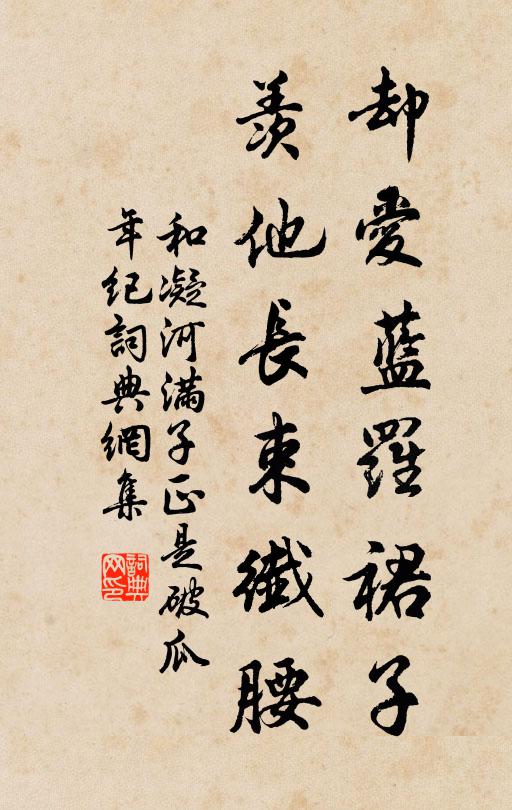 却愛藍羅裙子
羨他長束纖腰
和凝河滿子正是破瓜
年紀詞典網集
詞典
网印